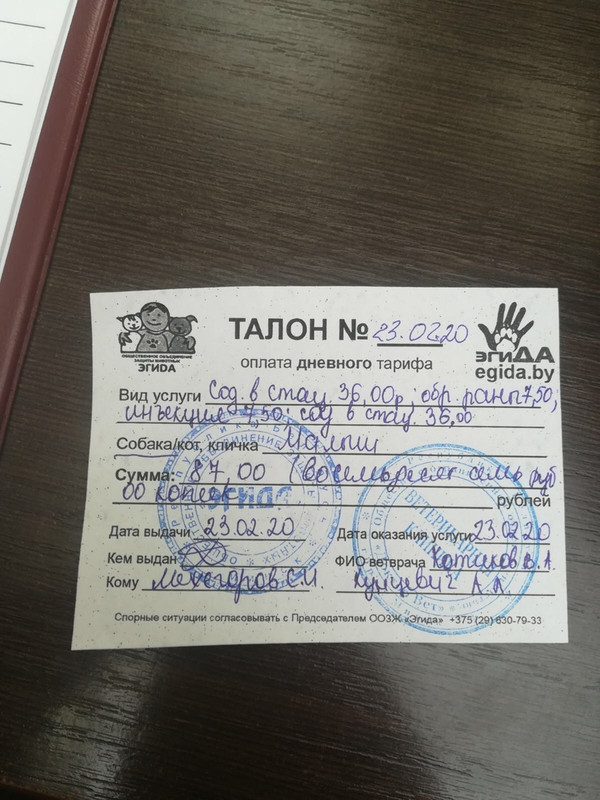 ОБЩЕСТВЕННОЕ ОБЪЕДИНЕНИЕ
ЗАЩИТЫ ЖИВОТНЫХ
ЭГИДА
ТАЛОН № 23.02.20
оплата дневного тарифа
эгиДА
egida.by
Вид услуги Сод в стац. 36,00р; обр. раны 7,50;
инъекция 7,50; сод в стац 36,00
Собака/кот, кличка Малыш
Сумма: 87.00 (восемьдесят семь руб
00 копеек рублей
ЭГИДА
Дата выдачи 23.02.20 Дата оказания услуги 23.02.20
Кем выдан ФИО ветврача Котиков В.А.
Кому С.И. Кунцевич А.А
Спорные ситуации согласовывать с Председателем ООЗЖ «Эгида» +375 (29) 630-79-33